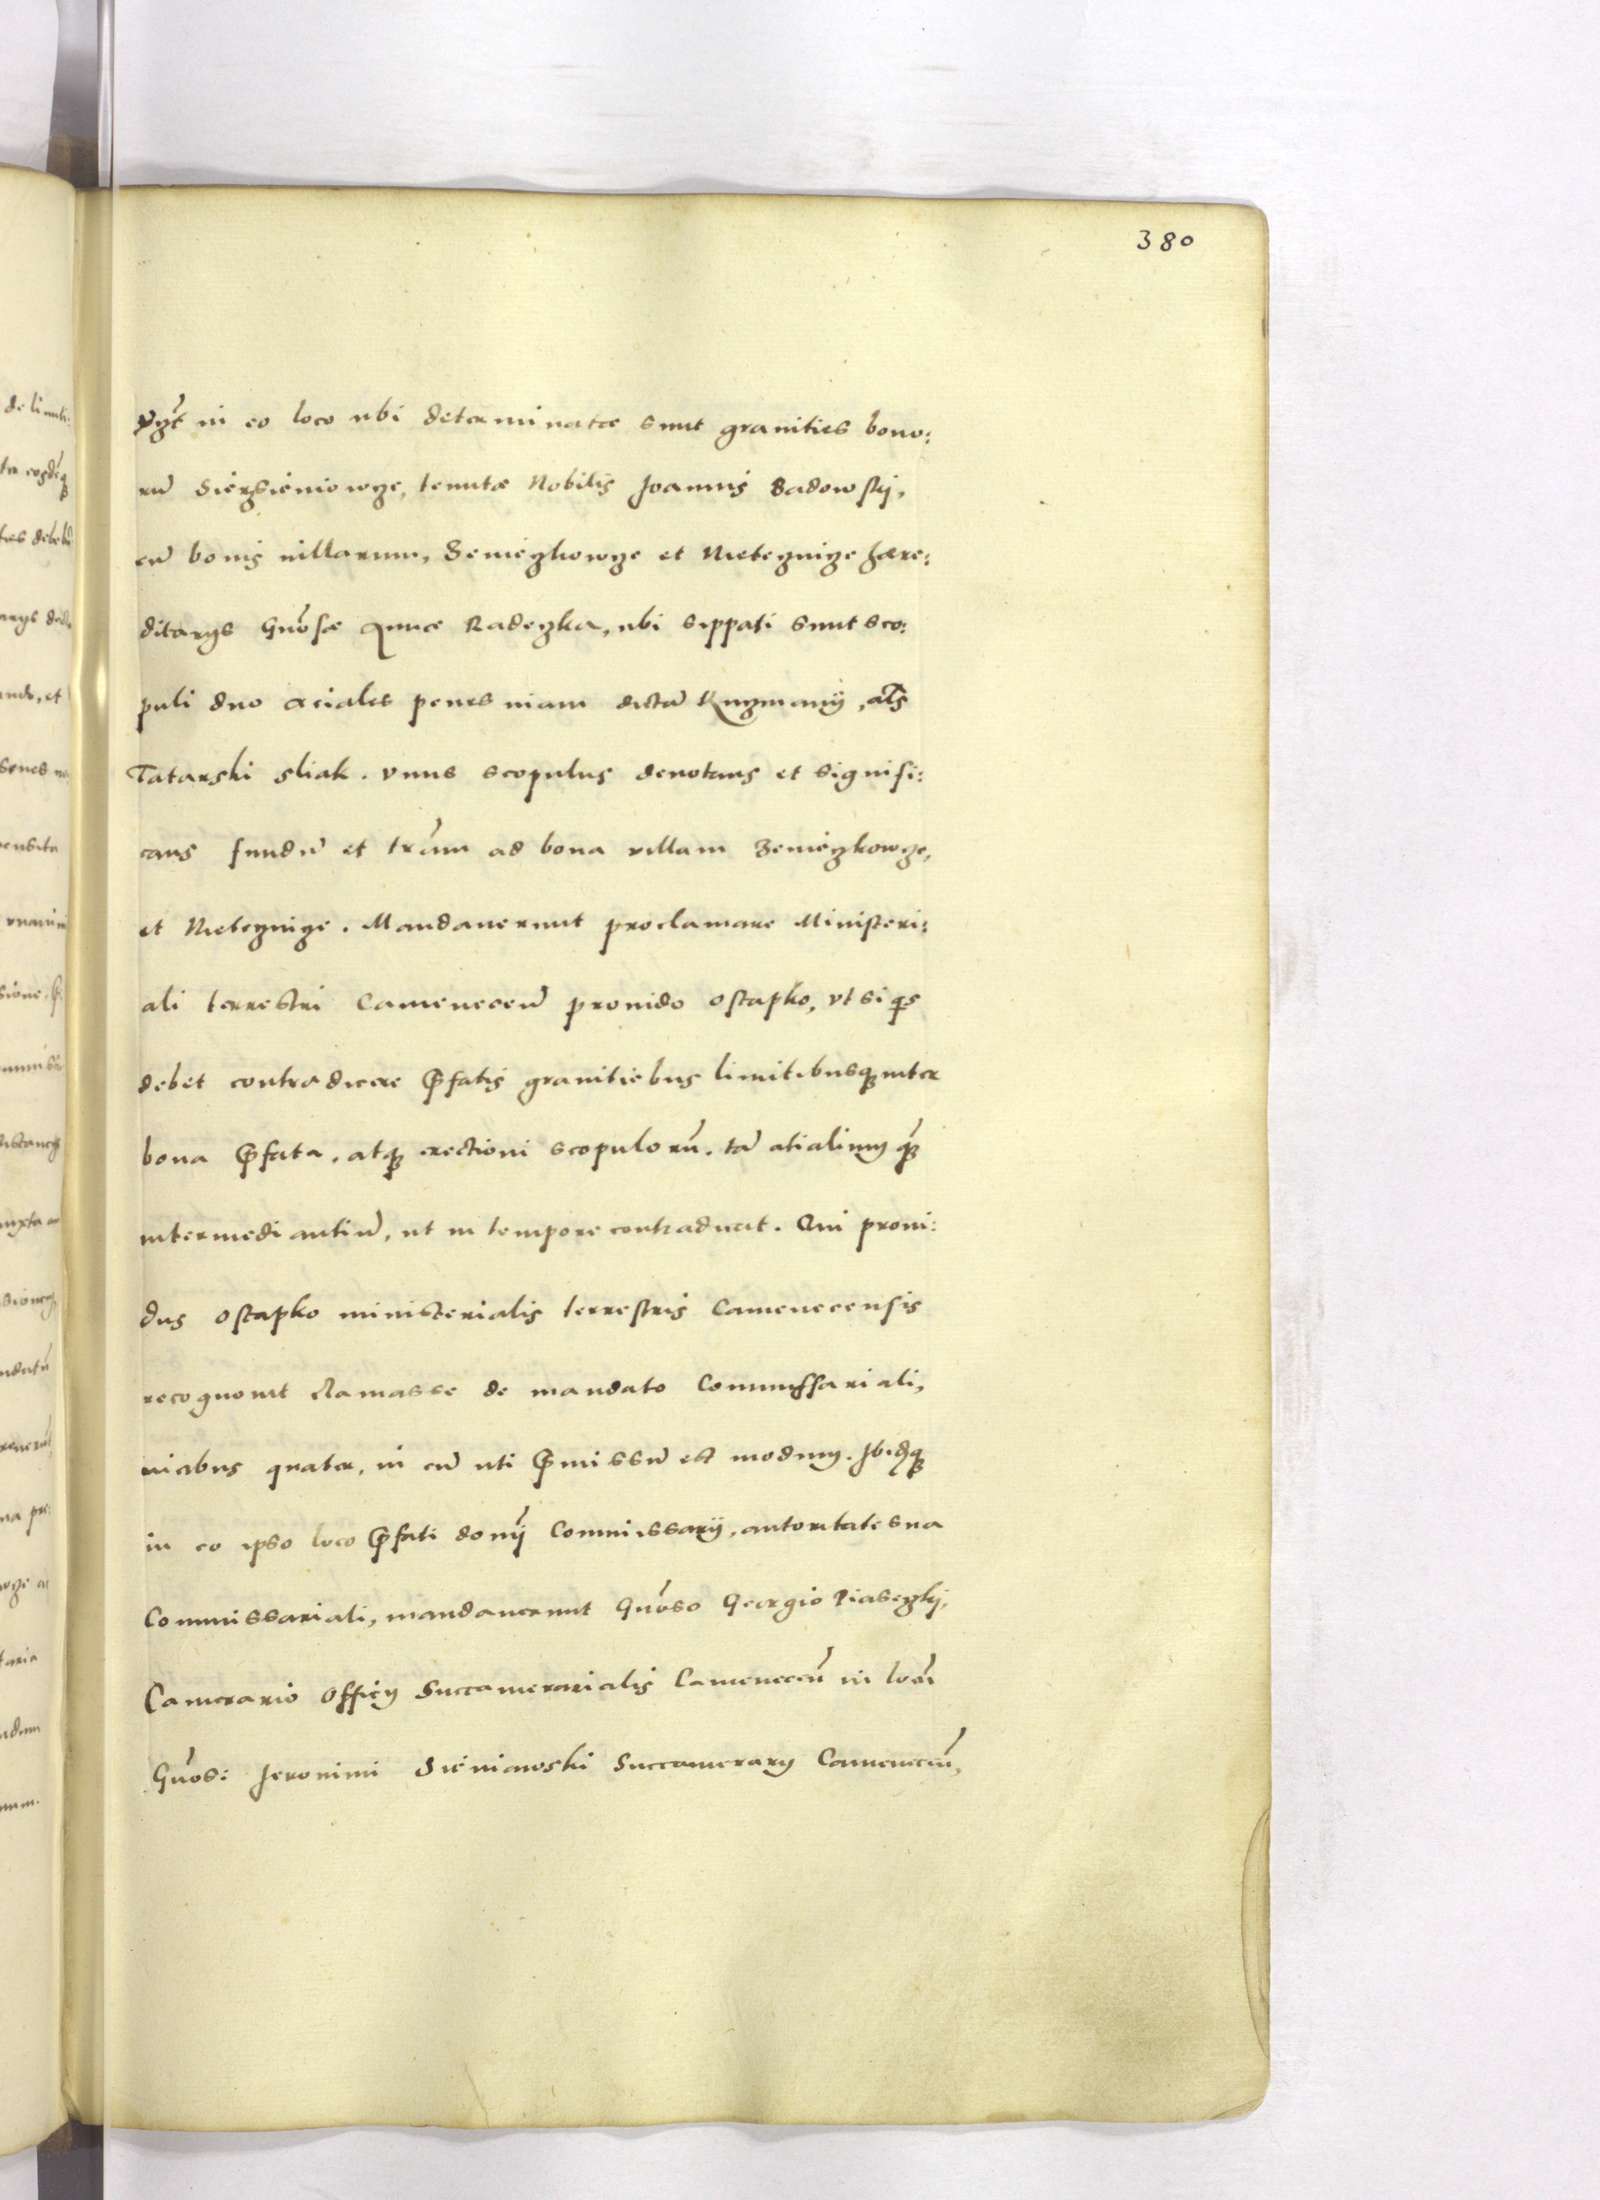 380
Vzt in eo loco ubi determinatæ sunt granities bono:
rū Siersieniowce, tenutæ Nobilis Joannis Sadowskÿ,
cū bonis villarum, Zeniezkowze et Meteznize hære:
ditarys Gnōsæ Annæ Radezka, ubi sippati sunt sco:
puli duo aciales penes viam dictā Kuzmanÿ, als
Tatarski sliak. Vnus scopulus denotans et signifi:
cans fundū et trām ad bona villam Zeniezkowze,
et Meteznize. Mandaverunt proclamare Ministeri:
ali terrestri Camenecen̄ provido Ostapko, vt si qs
debet contradicere p̄fatis granitiebus limitibusq inter
bona p̄fata, atq erectioni scopulorū, tā atialium q̄
intermediantiū, ut in tempore contradicat. Qui provi:
dus Ostapko ministerialis terrestris Camenecensis
recognovit clamasse de mandato Commissariali,
vicibus quater, in eū uti p̄missū est modum. Ibidq
in eo ipso loco p̄fati domī Commissarÿ, autoritate sua
Commissariali, mandaverunt Gnōso Georgio Piasezkÿ,
Camerario Officÿ Succamerarialis Camenecen̄ in locū
Gnōsi Jeronimi Sieniawski Succamerarÿ Camenecen̄,